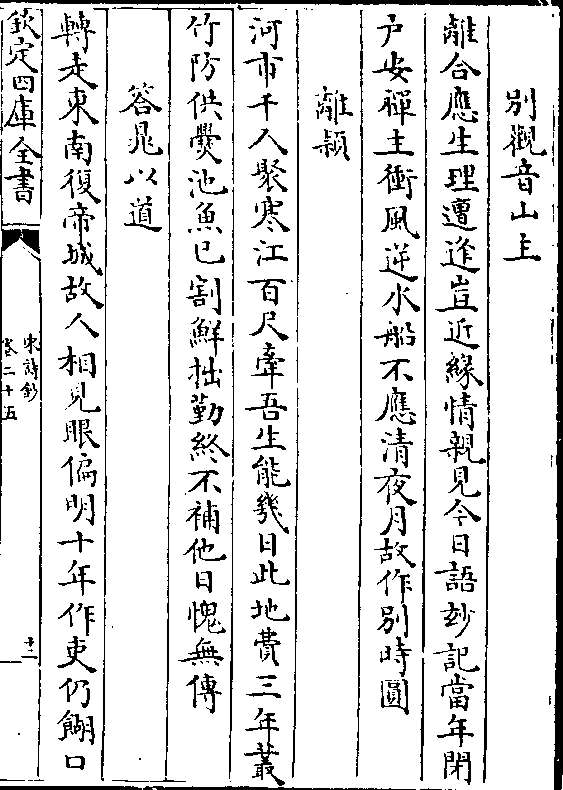 別觀音山主
離合應生理遭逢豈近緣情親見今日語妙記當年閉
户安禪主衝風逆水船不應清夜月故作別時圓
離潁
河市千人聚寒江百尺牽吾生能幾日此地費三年叢
竹防供㸑池魚已割鮮拙勤終不補他日愧無傳
答晁以道
轉走東南復帝城故人相見眼偏明十年作吏仍餬口
欽定四庫全書
宋詩鈔
卷二十五
十二